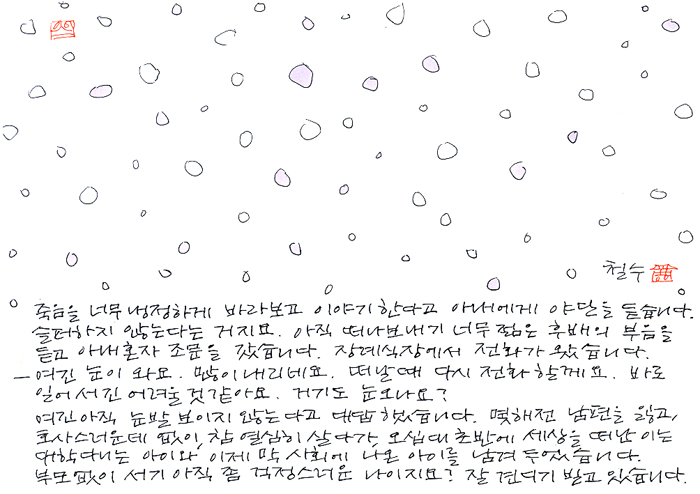 철수
죽음을 너무 냉정하게 바라보고 이야기한다고 아내에게 야단을 듣습니다.
슬퍼하지 않는다는 거지요. 아직 떠나보내기 너무 젊은 후배의 부음을
듣고 아내혼자 조문을 갔습니다. 장례식장에서 전화가 왔습니다.
— 여긴 눈이 와요. 많이 내리네요. 떠날 때 다시 전화 할게요. 바로
일어서긴 어려울 것 같아요. 거기도 눈 오나요?
여긴 아직 눈발 보이지 않는다고 대답했습니다. 몇해전 남편을 잃고,
호사스러운데 없이, 참 열심히 살다가 오십대 초반에 세상을 떠난 이는
대학다니는 아이와, 이제 막 사회에 나온 아이를 남겨 두었습니다.
부모없이 서기 아직 좀 걱정스러운 나이지요? 잘 견디기 빌고 있습니다.